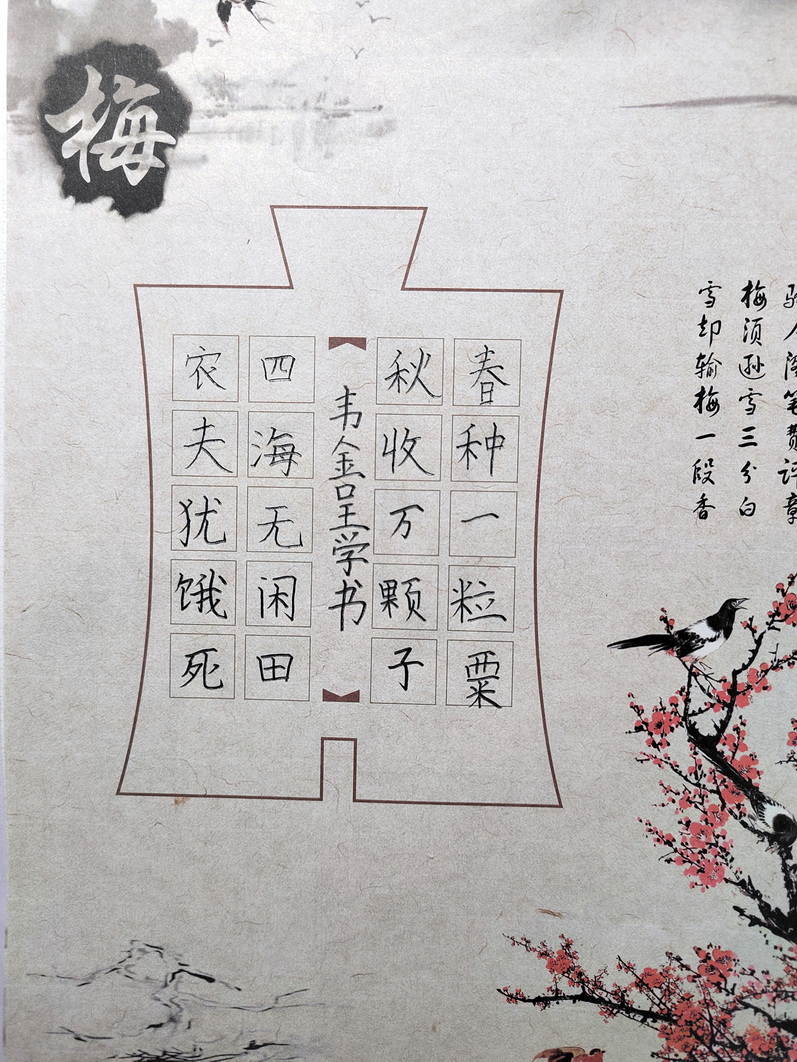 梅
笔费评章
梅须逊雪三分白
雪却输梅一段香
春种一粒粟
秋收万颗子
韦金呈学书
四海无闲田
农夫犹饿死